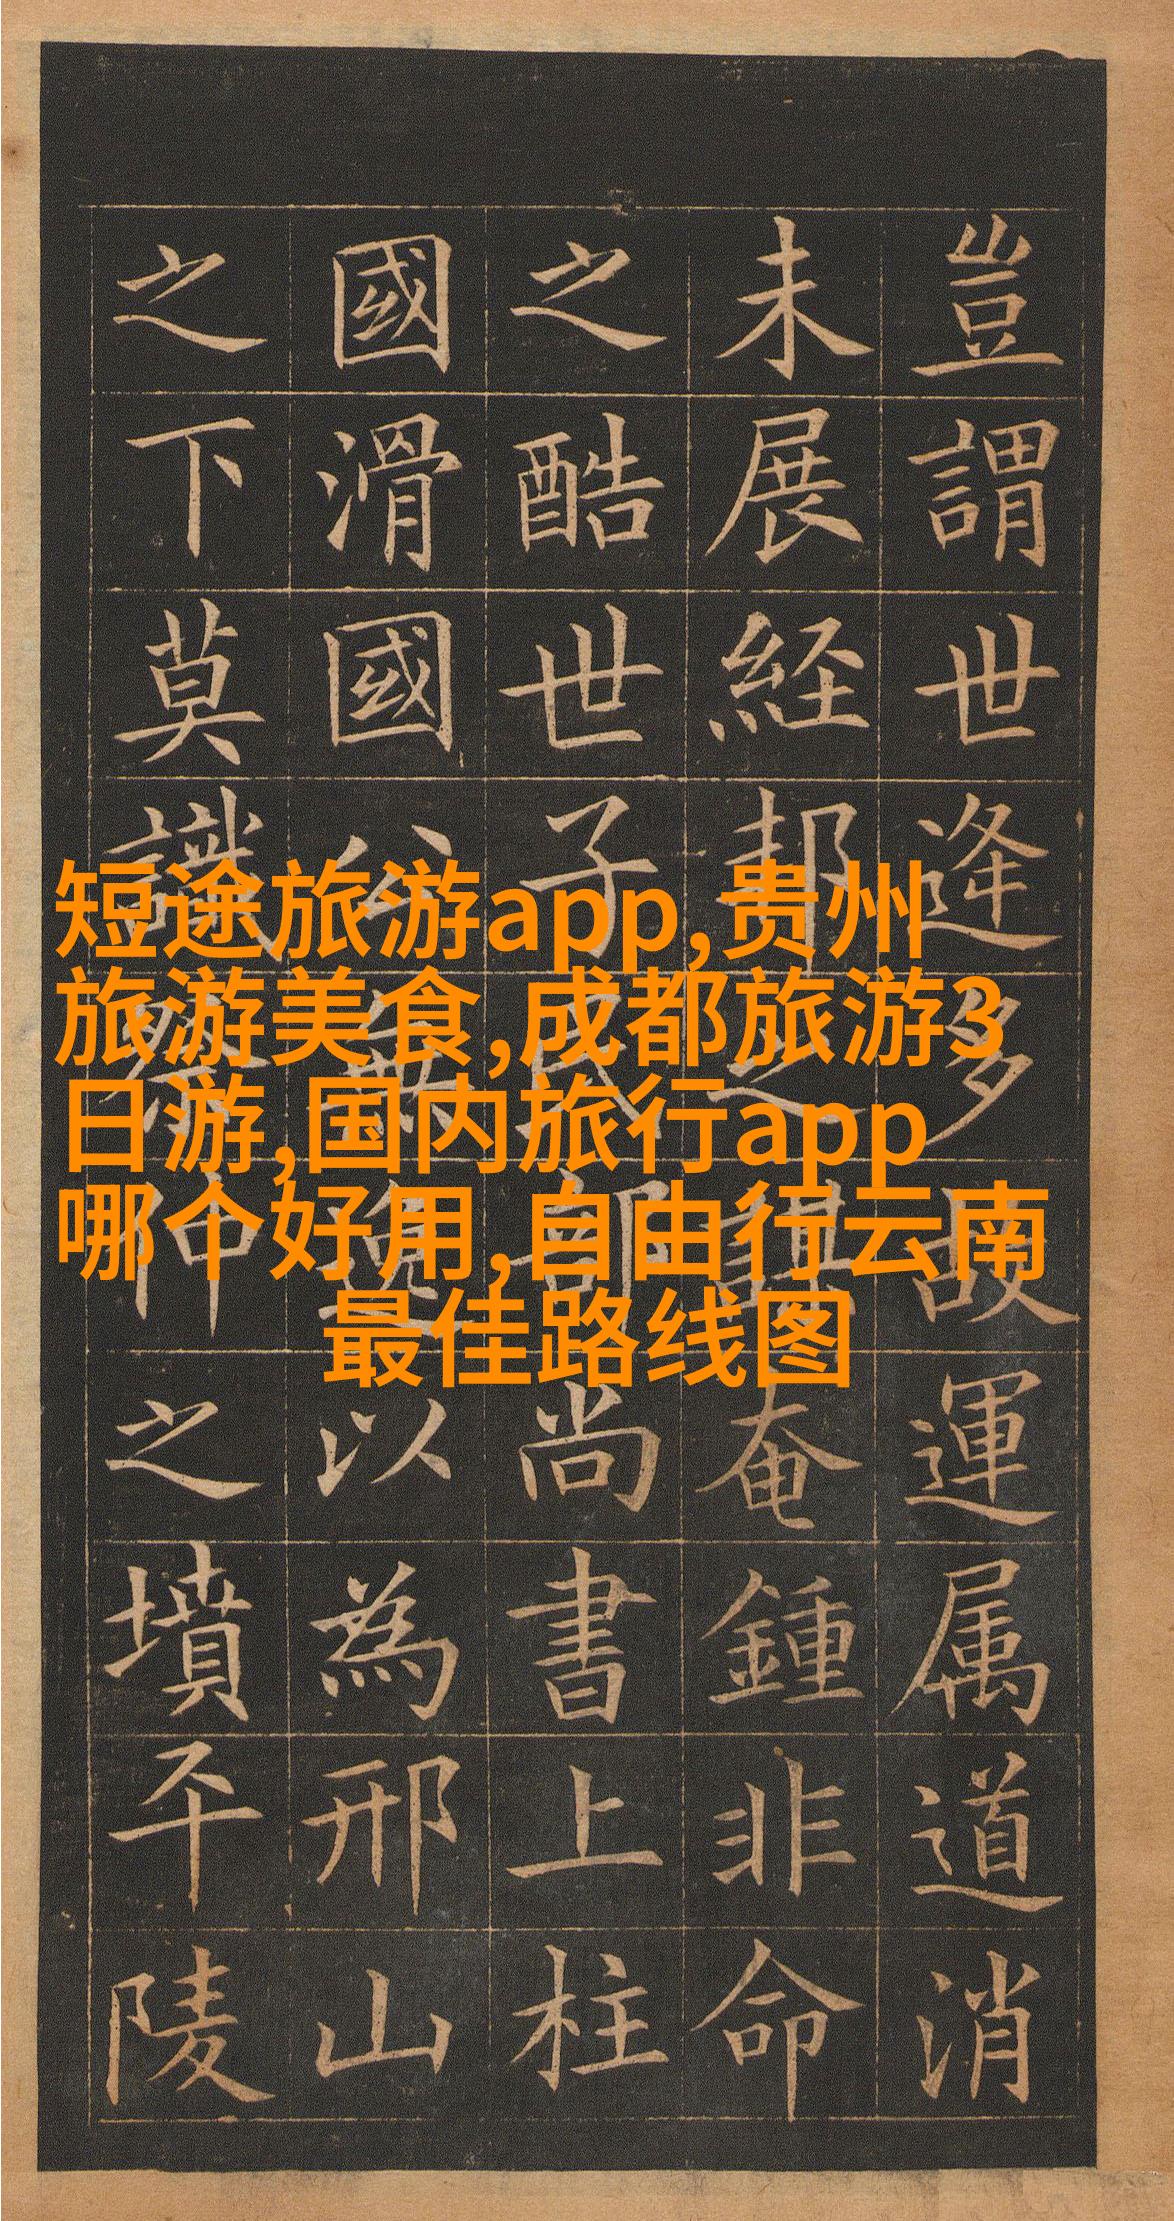 豈謂世逄多故運属道消
未展経邦之謀奄鍾非命
之酷世子民部尚書上柱
國滑國公無逸以為邢山
之下莫識祭仲之墳平陵
短途旅游app,贵州
旅游美食,成都旅游3
日游,国内旅行app
哪个好用,自由行云南
最佳路线图